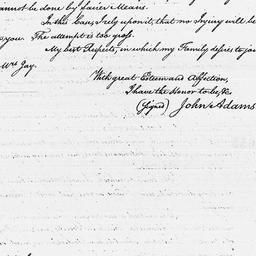 cannot be done by fairer Means.
In this Case, I rely upon it, that no Injury will be
you. The attempt is too gross.
My best Respects, in which my Family desires to joi
Mrs Jay.
With great Esteem and Affection,
I have the Honor to be, &c
(Signed) John Adams